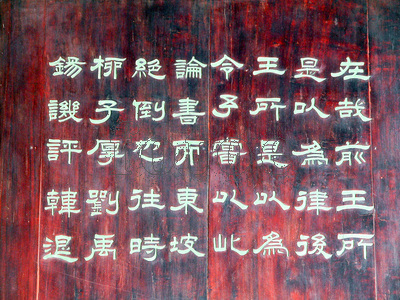 在哉前王所
是以為律後
王所是以為
令予嘗以此
論書而東坡
絕倒也往時
柳子厚劉禹
錫譏評韓退